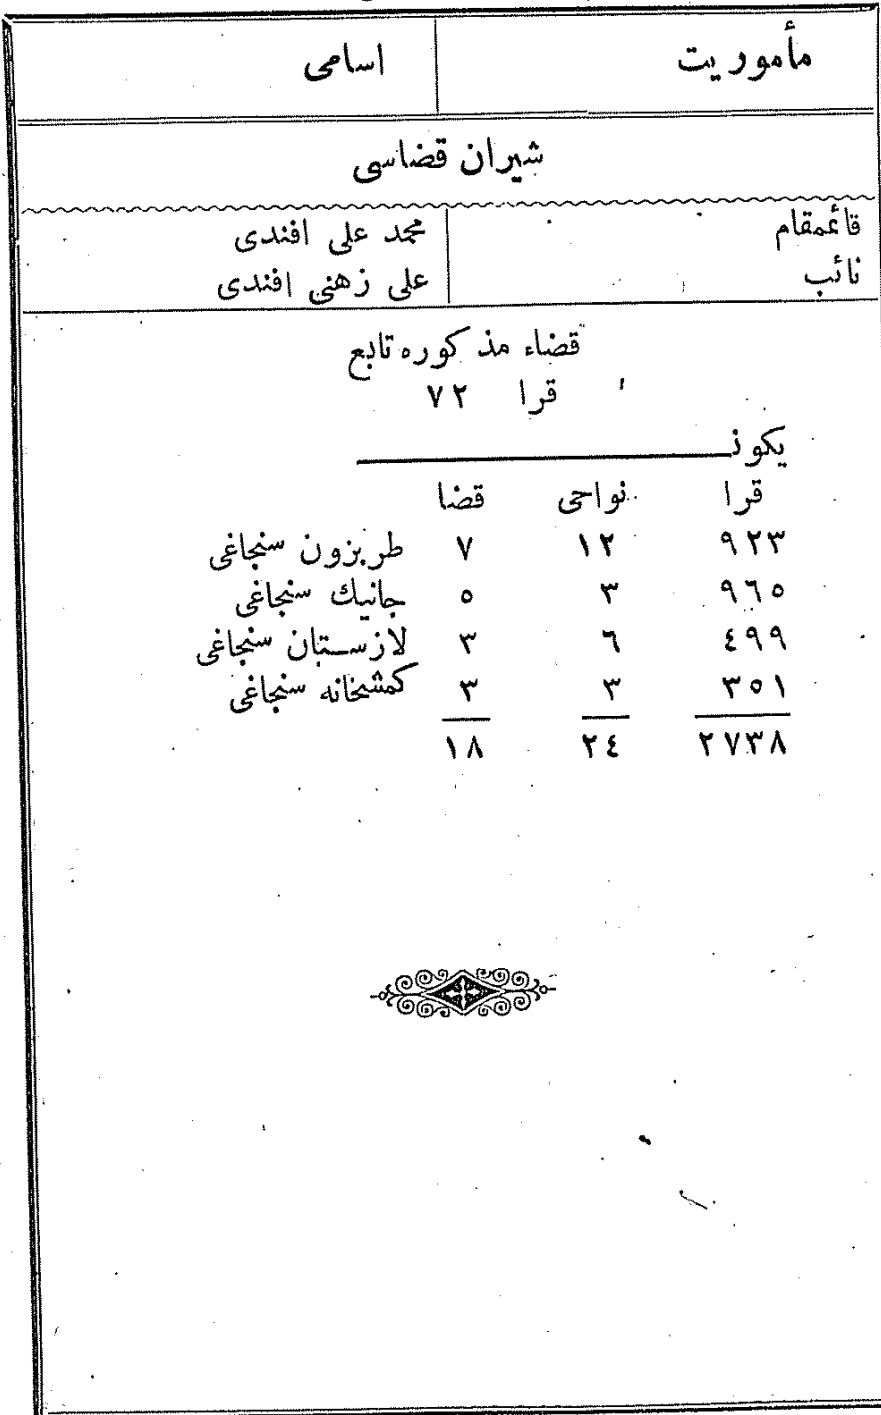 مأموریت اسامی
شیران قضاسی
قائممقام محمد علی افندی
نائب علی زهنی افندی
قضاء مذکوره تابع
قرا ٧٢
یکون
قرا نواحی قضا
٩٢٣ ١٢ ٧ طربزون سنجاغی
٩٦٥ ٣ ٥ جانیك سنجاغی
٤٩٩ ٦ ٣ لازستان سنجاغی
٣٥١ ٣ ٣ کمشخانه سنجاغی
٢٧٣٨ ٢٤ ١٨